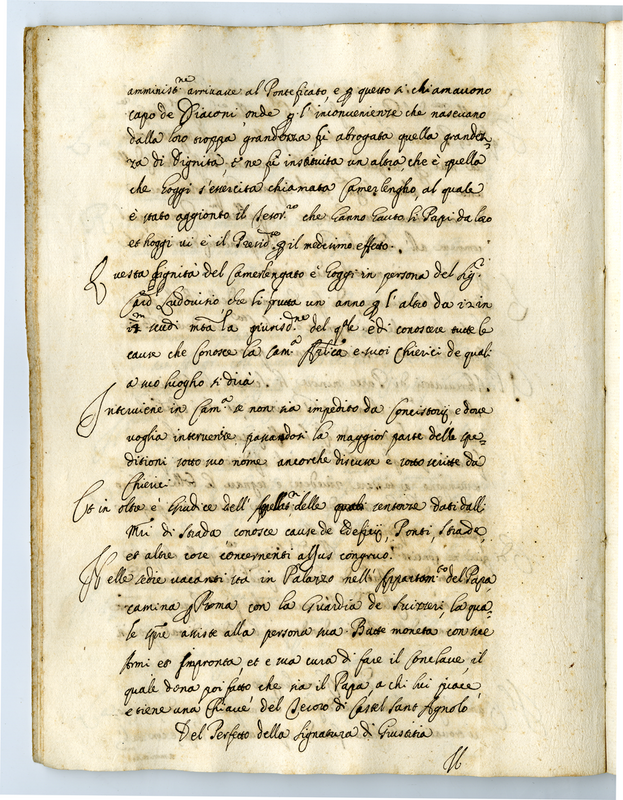 amminist.ne arrivare al Ponteficato, e p questo si chiamavono
capo de Diaconi, onde p l'inconvenienze che nascevano
dalla loro troppa grandezza fù abrogata quella grandez-
za di Dignità, e ne fù instituita un altra, che è quella
che hoggi s'esercita chiamata Camerlengho, al quale
è stato aggionto il Tesor.ro che hanno hauto li Papi da loro
et hoggi vi è il Presid.te p il medesimo effetto.
Questa Dignità del Camerlengato è hoggi in persona del Sig.r
Card Ludovisio che li frutta un anno p l'altro da 12 in
scudi mta la giurisd.ne del qle è di conoscere tutte le
cause che conosce la Cam.a Aplica e suoi Chierici de quali
a suo luogho si dirà
Interviene in Cam.a se non sia impedito da Concistorij e dove
voglia intervenire passandosi la maggior parte delle spe-
ditioni sotto suo nome ancorche discusse e sotto scritte da
Chierici
Et in oltre è Giudice dell' Appellat.i delle quali sentenze dati dall
Mri di Strada conosce cause de Edefitij, Ponti, Strade,
et altre cose concernenti a Jus congruo.
Nelle sedie vacanti sta in Palazzo nell' Appartam.to del Papa
camina p Roma con la Guardia de Suizzeri, la qua-
le spre assiste alla persona sua. Batte moneta con sue
Armi et Impronta et e sua cura di fare il Conclave, il
quale dona poi fatto che sia il Papa, a chi lui piace,
e tiene una Chiave del Tesoro di Castel Sant Agnolo
Del Perfetto della Signatura di Giustitia
Il